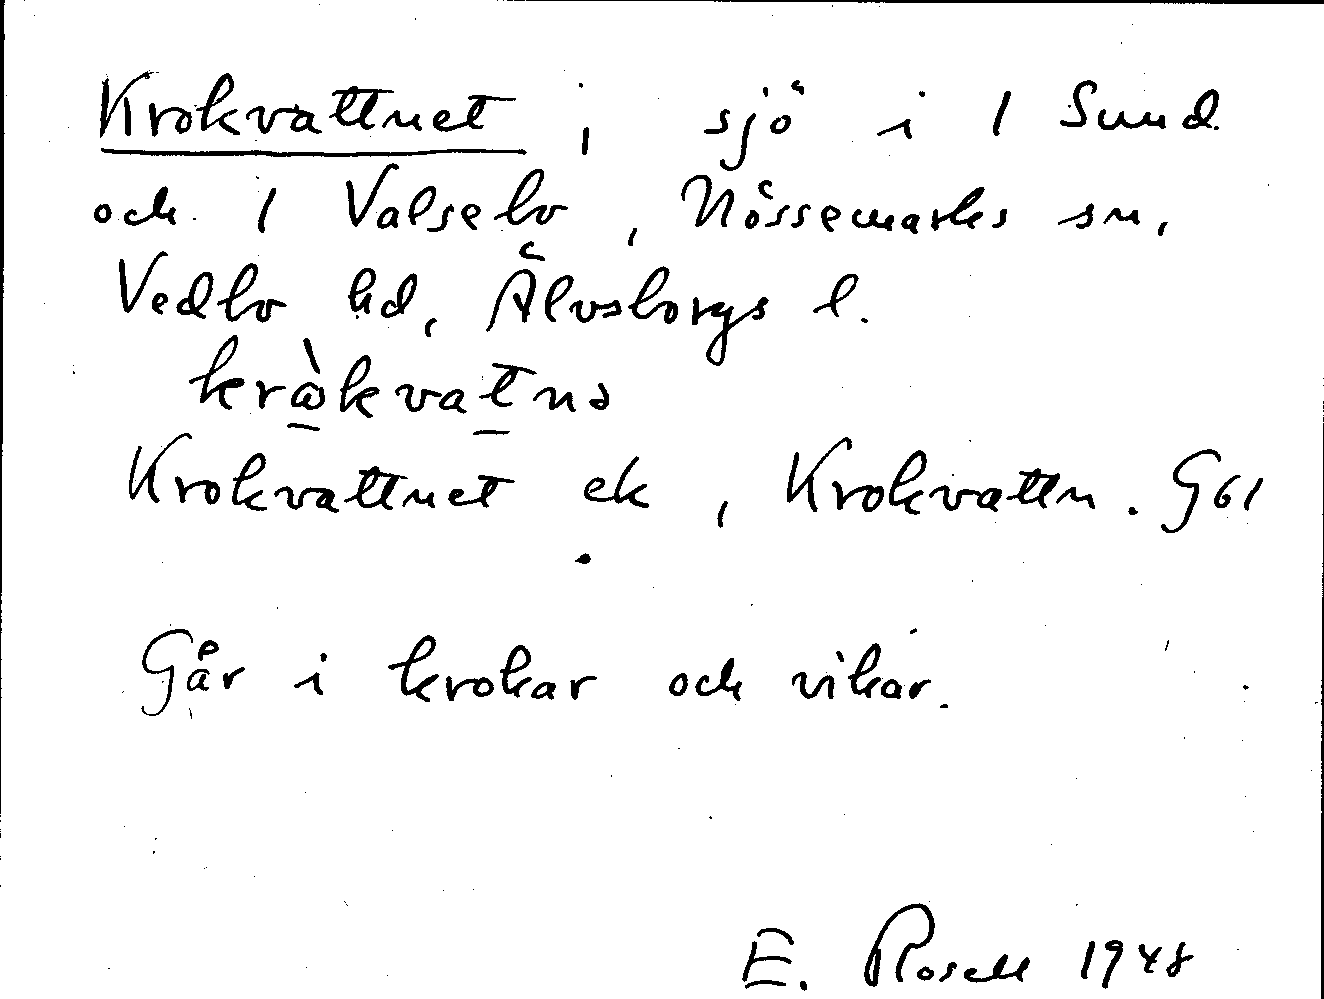 Krokvattnet, sjö i 1 Sund
och 1 Valsebo, Nössemarks sn,
Vedbo hd, Älvsborgs l.
krὼkvatnə
Krokvattnet ek, Krokvattn. G61
Går i krokar och vikar.
E. Rosell 1948